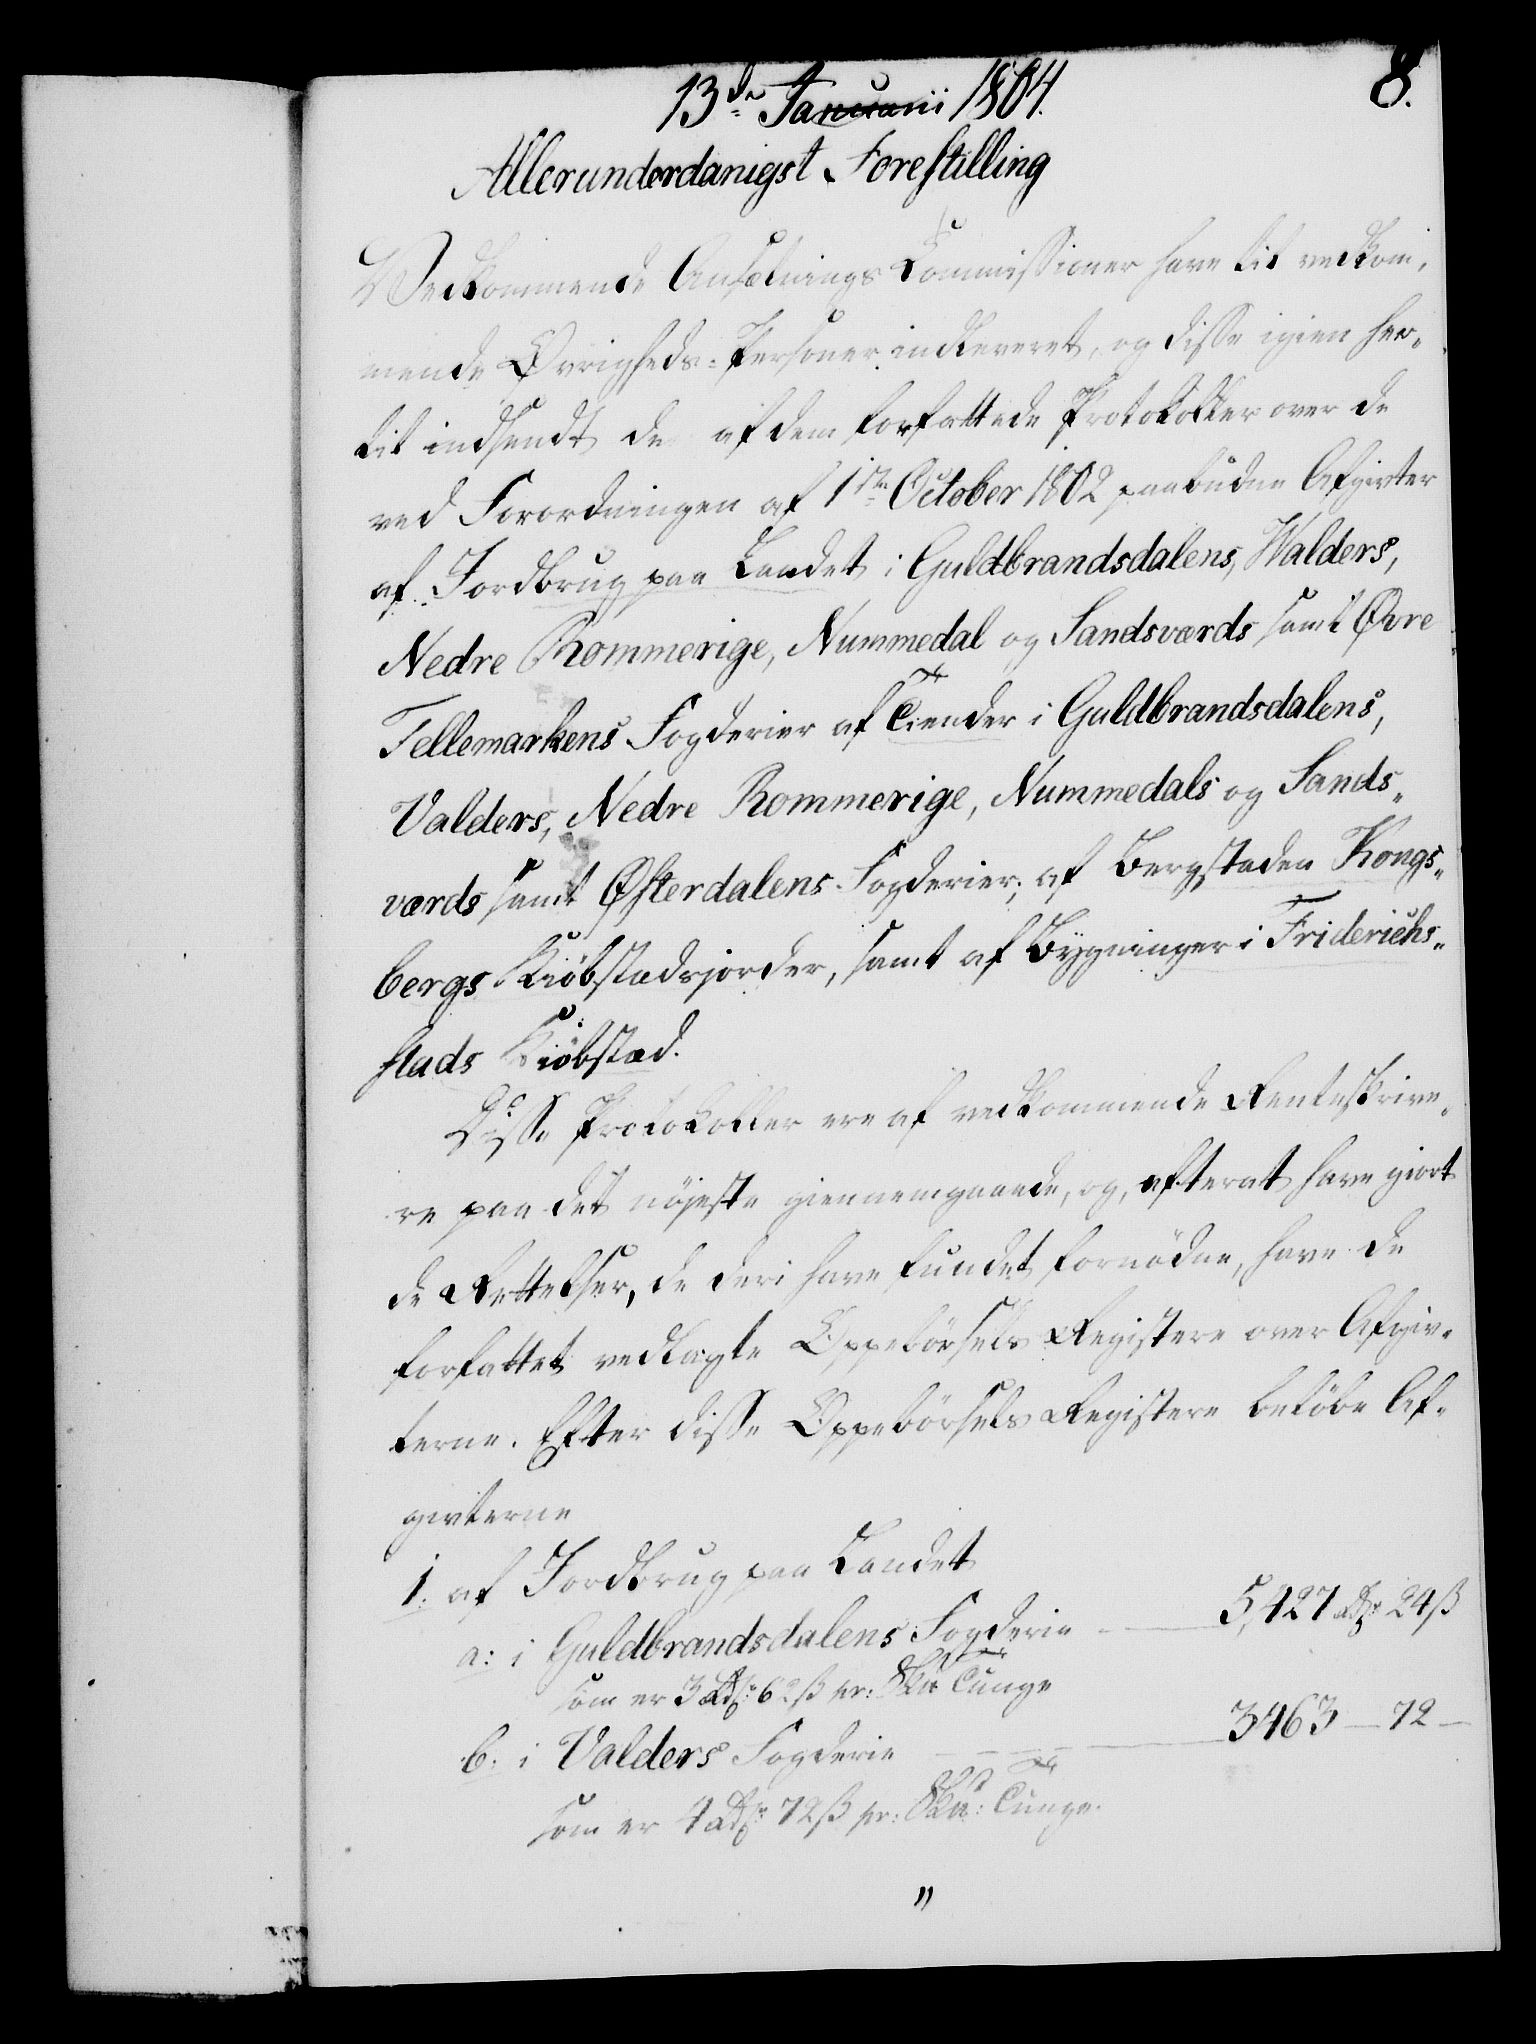 8.
13de Januarii 1804.
Allerunderdanigst Forestilling
Vedkommende Ansætnings Commissioner have til vedkom,
mende Øvrigheds-Personer indleveret, og disse igien her,
til indsendt de af dem forfattede Protokoller over de
ved Forordningen af 1ste October 1802 paabudne Afgivter
af Jordbrug paa Landet i Guldbrandsdalens, Walders,
Nedre Rommerige, Nummedal og Sandsværds samt Øvre
Tellemarkens Fogderier af Tiender i Guldbrandsdalens,
Valders, Nedre Rommerige, Nummedals og Sands„
værds samt Østerdalens Fogderier; af Bergstaden Kongs„
bergs Kiöbstadsjorder, samt af Bygninger i Friderichs„
stads Kiöbstad.
Disse Protokoller ere af vedkommende Renteskrive,
re paa det nöjeste giennemgaaede, og, efterat have giort
de Rettelser, de deri have fundet fornödne, have de
forfattet vedlagte Oppebörsels Registere over Afgiv,
terne. Efter disse Oppebörsels Registere belöbe Af,
givterne
1. af Jordbrug paa Landet
a: i Guldbrandsdalens Fogderie 5,427 Rdr 24 ß
som er 3 Rdr 62 ß pr: Skÿ Tunge
b. i Valders Fogderie 3463 — 72 —
som er 4 Rdr 72 ß pr: Tunge.
"